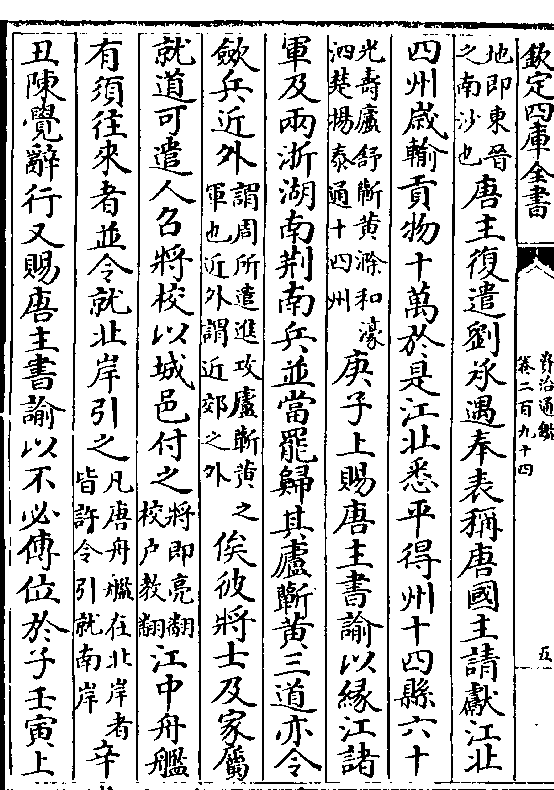 欽定四庫全書
資治通鑑
卷二百九十四
五
地即東晉
之南沙也
唐主復遣劉承遇奉表稱唐國主請獻江北
四州歲輸貢物十萬於是江北悉平得州十四縣六十
光壽廬舒蘄黃滁和濠
泗楚揚泰通十四州
庚子上賜唐主書諭以緣江諸
軍及兩浙湖南荆南兵並當罷歸其廬蘄黃三道亦令
歛兵近外
謂周所遣進攻廬蘄黃之
軍也近外謂近郊之外
俟彼將士及家屬
就道可遣人召將校以城邑付之
將即亮翻
校户教翻
江中舟艦
有須往來者並令就北岸引之
凡唐舟艦在北岸者
皆許令引就南岸
辛
丑陳覺辭行又賜唐主書諭以不必傳位於子壬寅上